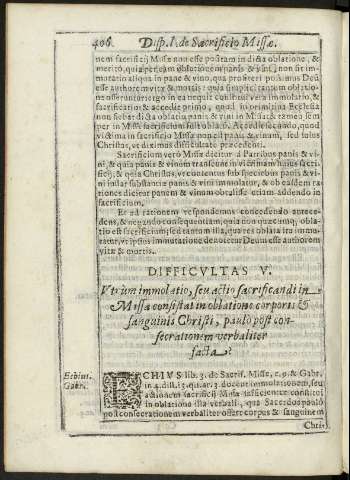 406. Disp. I. de Sacrificio Missæ.
nem sacrificij Missæ non esse positam in dicta oblatione, &
merito, quia per eam oblationem panis & vini, non fit im-
mutatio aliqua in pane & vino, qua profiteri possimus Deũ
esse authorem vitæ & mortis: quia simplici tantum oblatione
offeruntur: ergo in ea nequit constitui vera immolatio, &
sacrificatio: & accedit primo, quod in primitiua Ecclesia
non fiebat dicta oblatio panis & vini in Missa: & tamen sem
per in Missa sacrificium fuit oblatũ. Accedit secundo, quod
victima in sacrificio Missæ non est panis & vinum, sed solus
Christus, vt diximus difficultate præcedenti.
Sacrificium vero Missæ dicitur à Patribus panis & vi-
ni, & quia panis & vinum transeunt in victimam huius sacri-
ficij, & quia Christus, vt contentus sub speciebus panis & vi-
ni instar substantiæ panis & vini immolatur, & ob easdem ra-
tiones dicitur panem & vinum obtulisse
sacrificium.
Et ad rationem respondemus concedendo antece-
dens, & negando consequentiam, quia non quæcunque obla-
tio est sacrificium, sed tantum illa, qua res oblata ita immu-
tatur, vt ipsius immutatione denotetur Deum esse authorem
vitæ & mortis.
DIFFICVLTAS V.
Vtrum immolatio, seu actio sacrificandi in
Missa consistat in oblatione corporis &
sanguinis Christi, paulo post con-
secrationem verbaliter
facta?
Echius.
Gabri.
ECHIVS lib. 3. de Sacrif. Missæ, c. 9. & Gabr.
in 4. dist. 13. qu. ar. 3. docent immolationem, seu
actionem sacrificij Missæ
in oblatione illa verbali, qua Sacerdos paulo
post consecrationem verbaliter offert corpus & sanguinem
Chri-